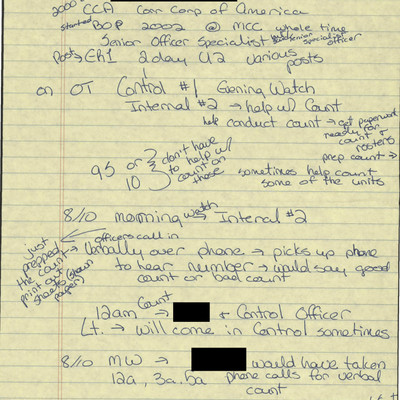 2000 CCA Corr Corp of America
started BOP 2002 @ MCC whole time
Senior Officer Specialist senior specialist officer
Post → ER1 2 day U2 various posts
on OT Control #1 Evening Watch
Internal #2 → help w/ Count
help conduct count → get paperwork ready for count & rosters
prep count →
95 or 10 } don't have to help w/ count on those
sometimes help count some of the units
8/10 morning watch → Internal #2
officers call in
just prepped the count print out sheets paper)
Verbally over phone → picks up phone
to hear number → would say good
count or bad count
12am Count → + Control Officer
Lt. → will come in Control sometimes
8/10 MW → would have taken
12a, 3a, 5a phone calls for verbal
count